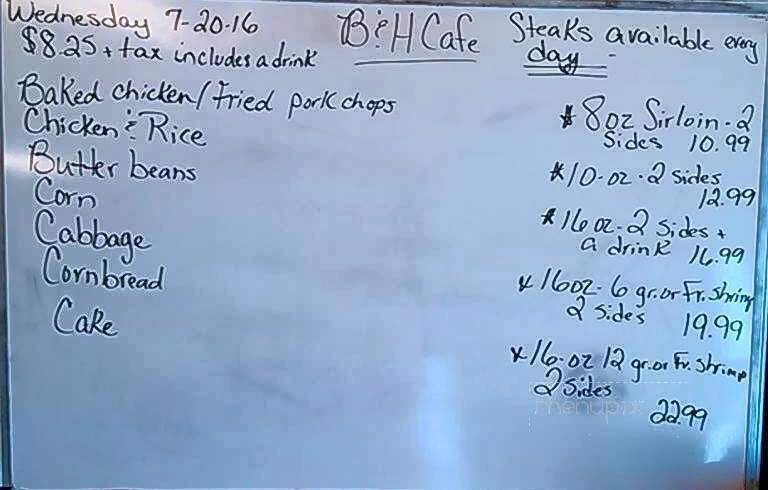 Wednesday 7-20-16
$8.25 + tax includes a drink
B&H Cafe
Baked chicken/Fried pork chops
Chicken & Rice
Butter beans
Corn
Cabbage
Cornbread
Cake
Steaks available every
day -
* 8oz Sirloin - 2
Sides 10.99
* 10-oz - 2 sides
12.99
* 16 oz - 2 sides +
a drink 16.99
* 16oz - 6 gr. or Fr. Shrimp
2 sides 19.99
* 16-oz 12 gr. or Fr. Shrimp
2 sides
22.99
menupix